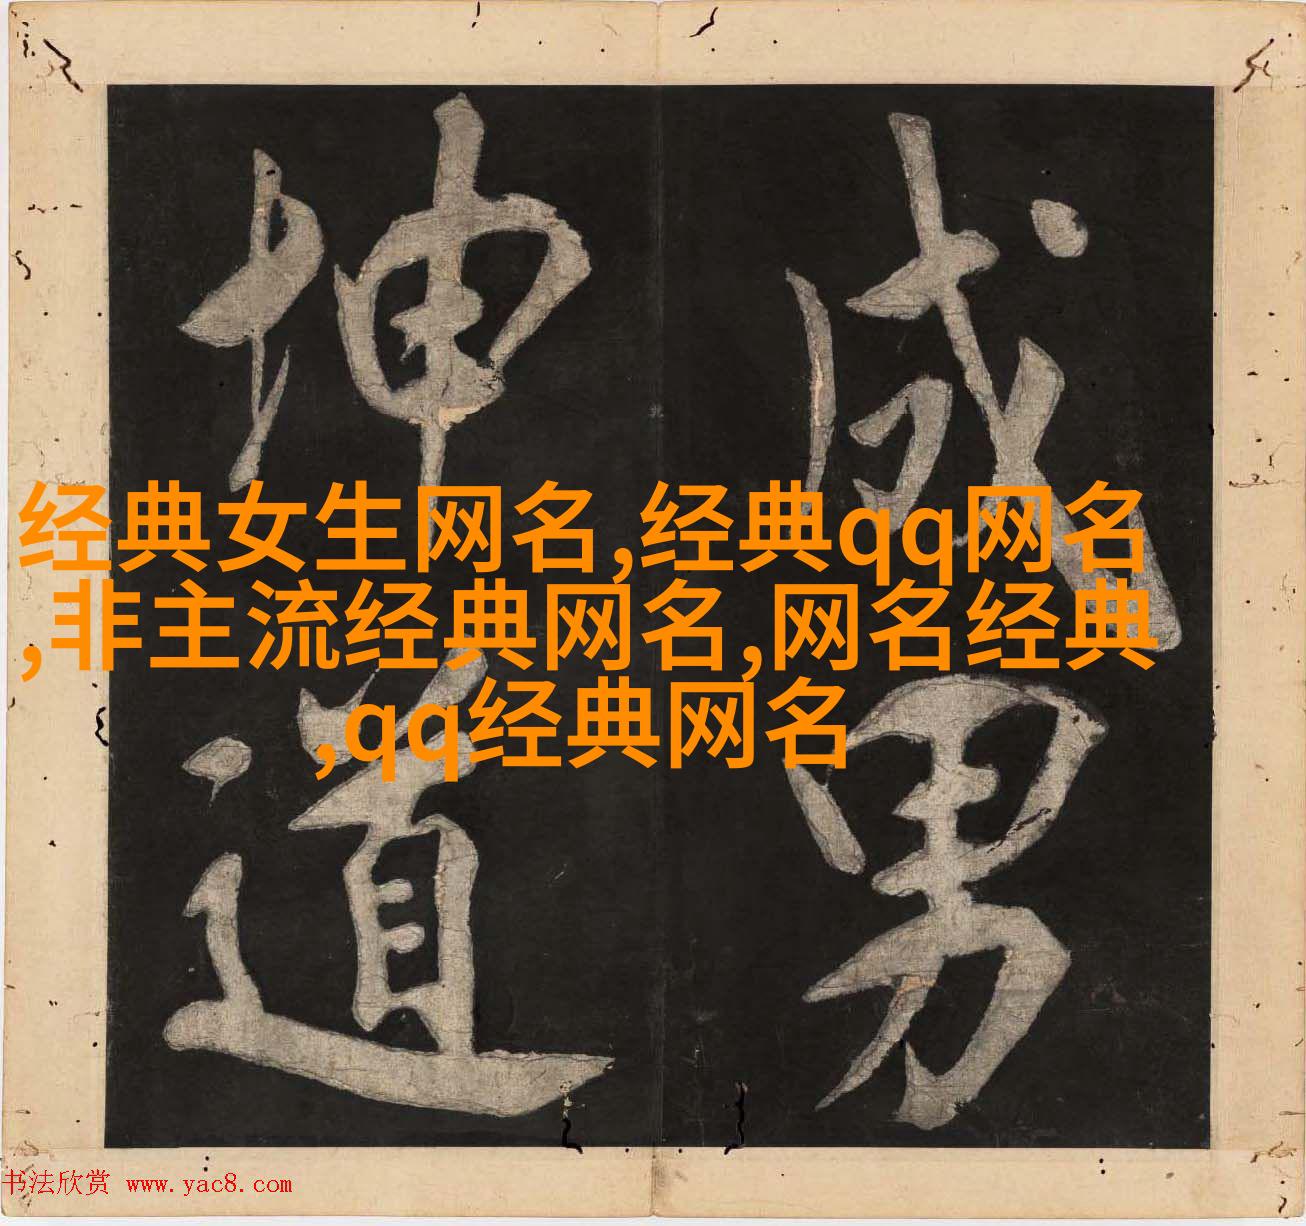 成男
坤道
经典女生网名,经典qq网名
,非主流经典网名,网名经典
,qq经典网名
书法欣赏 www.yac8.com